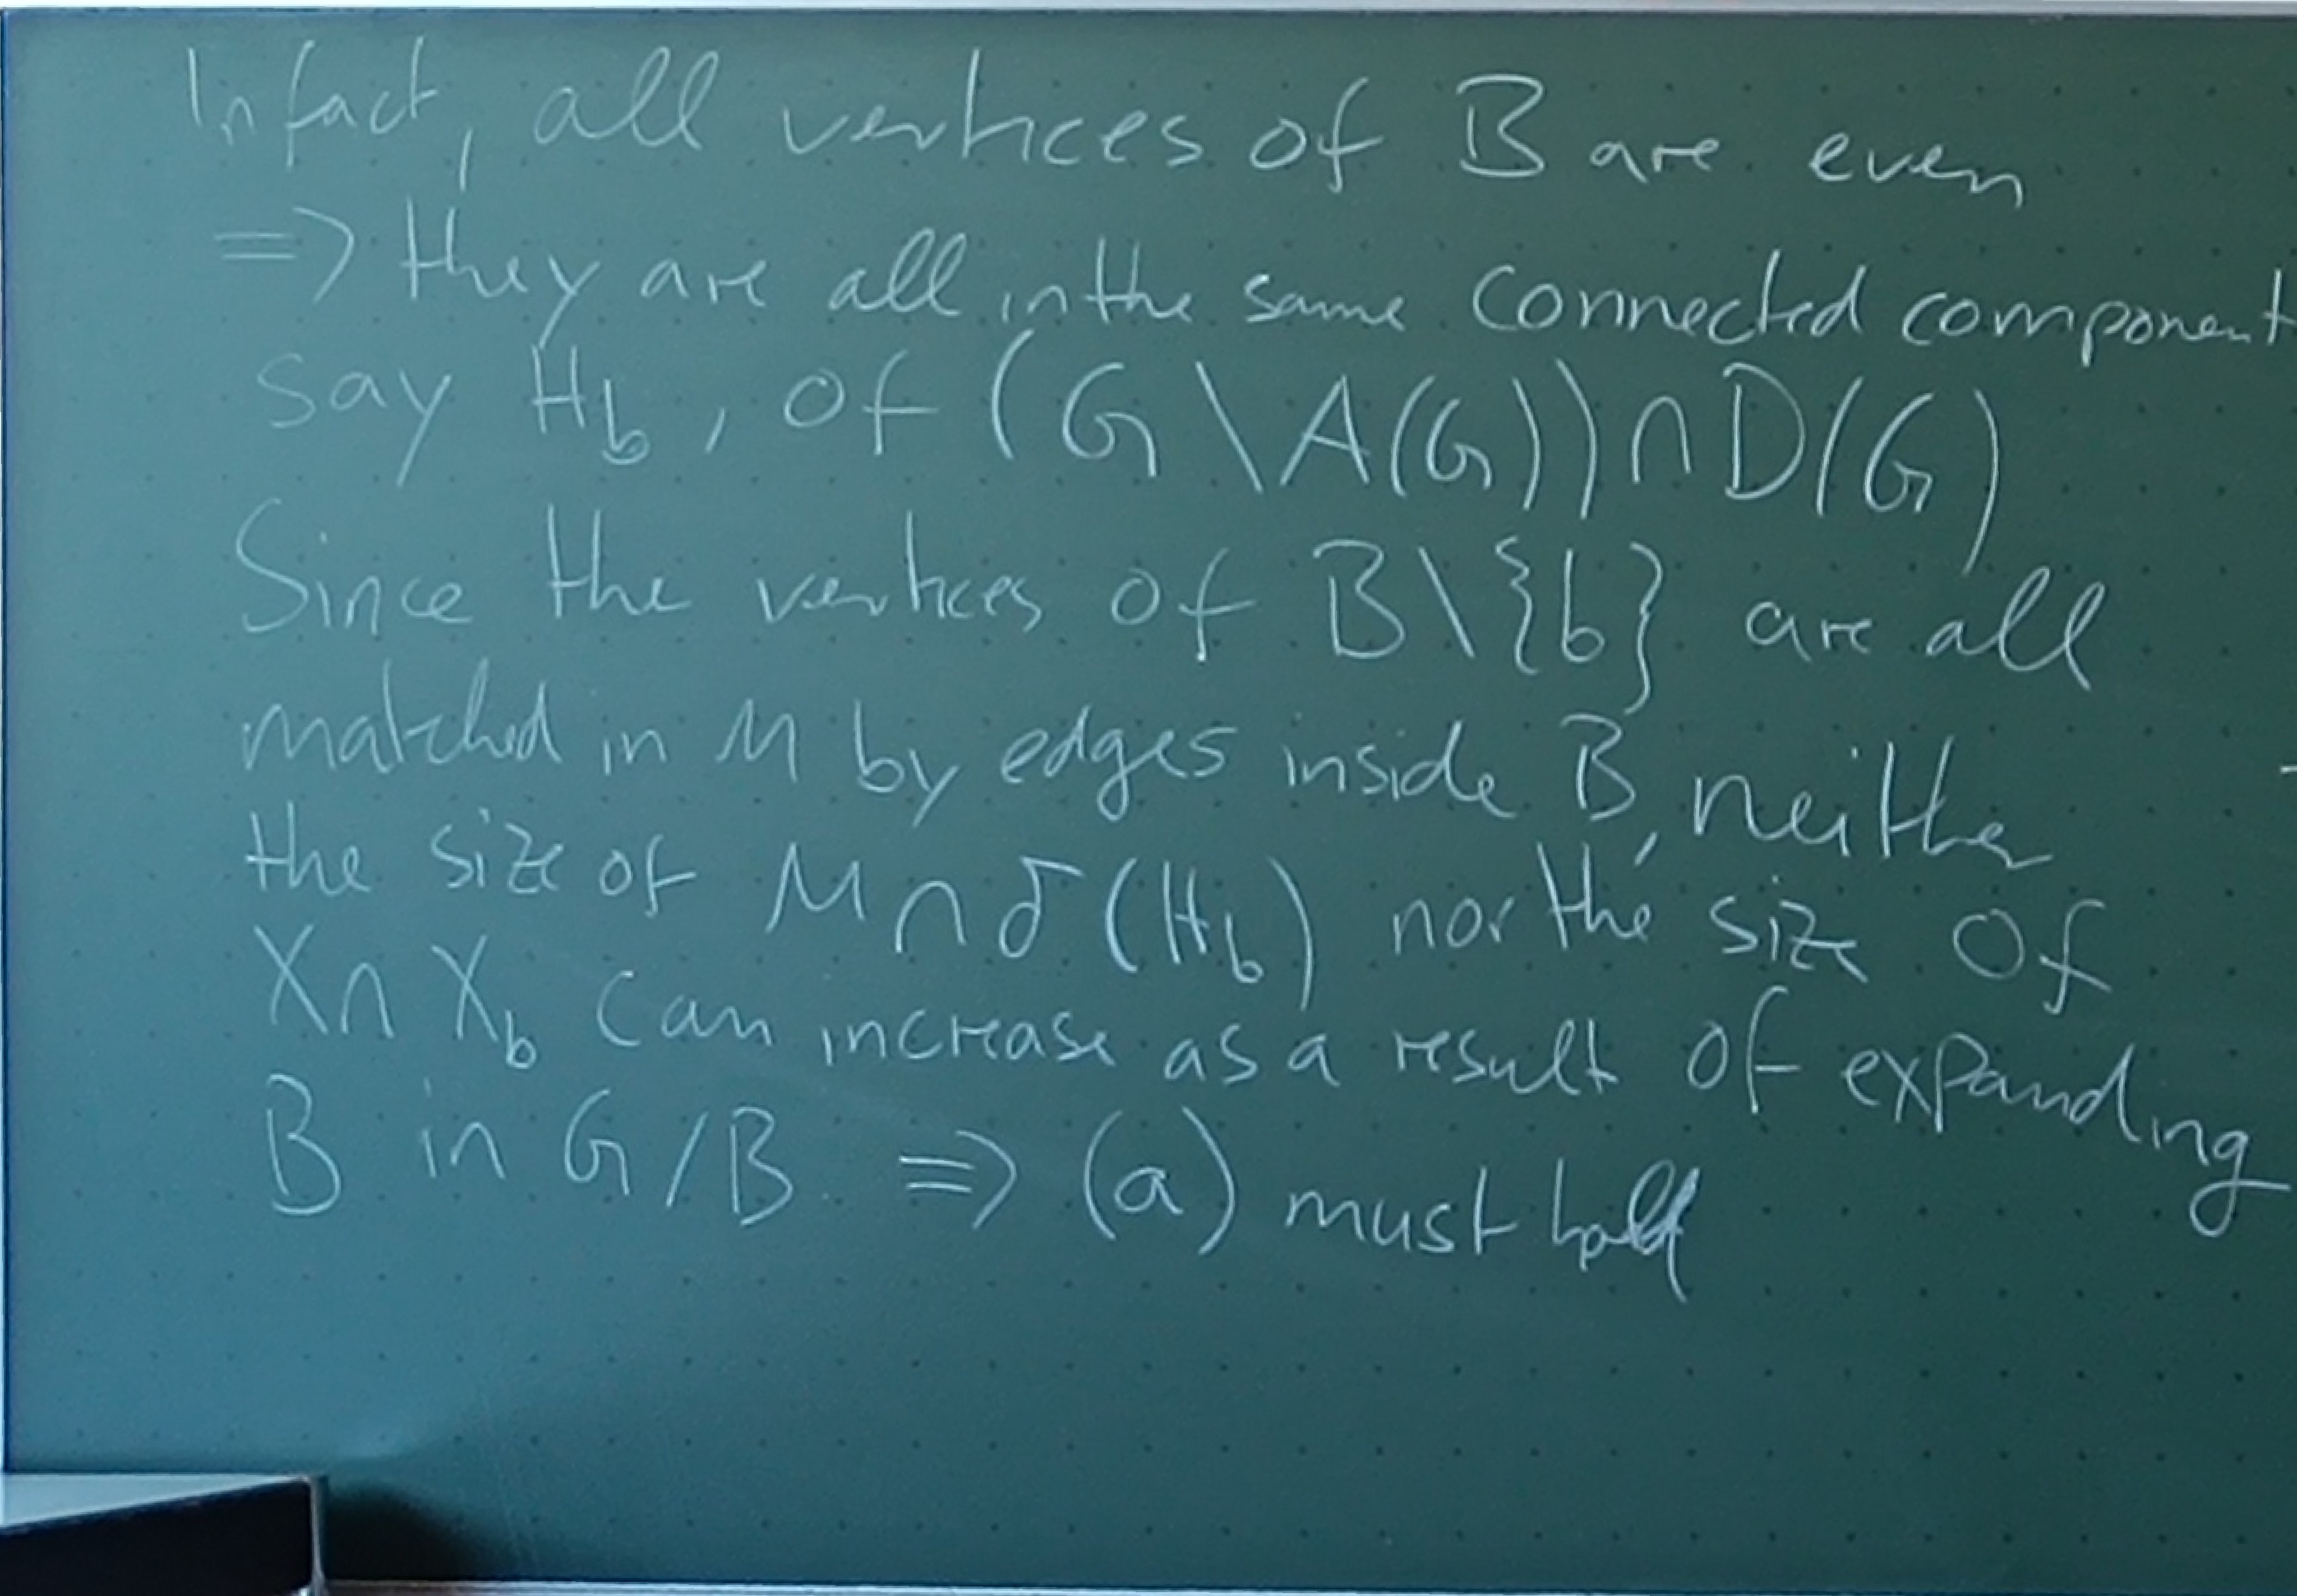 In fact, all vertices of B are even
=> they are all in the same connected component
say H_b, of (G \ A(G)) ∩ D(G)
Since the vertices of B\{b} are all
matched in M by edges inside B, neither
the size of M ∩ δ(H_b) nor the size of
X ∩ X_b can increase as a result of expanding
B in G/B => (a) must hold